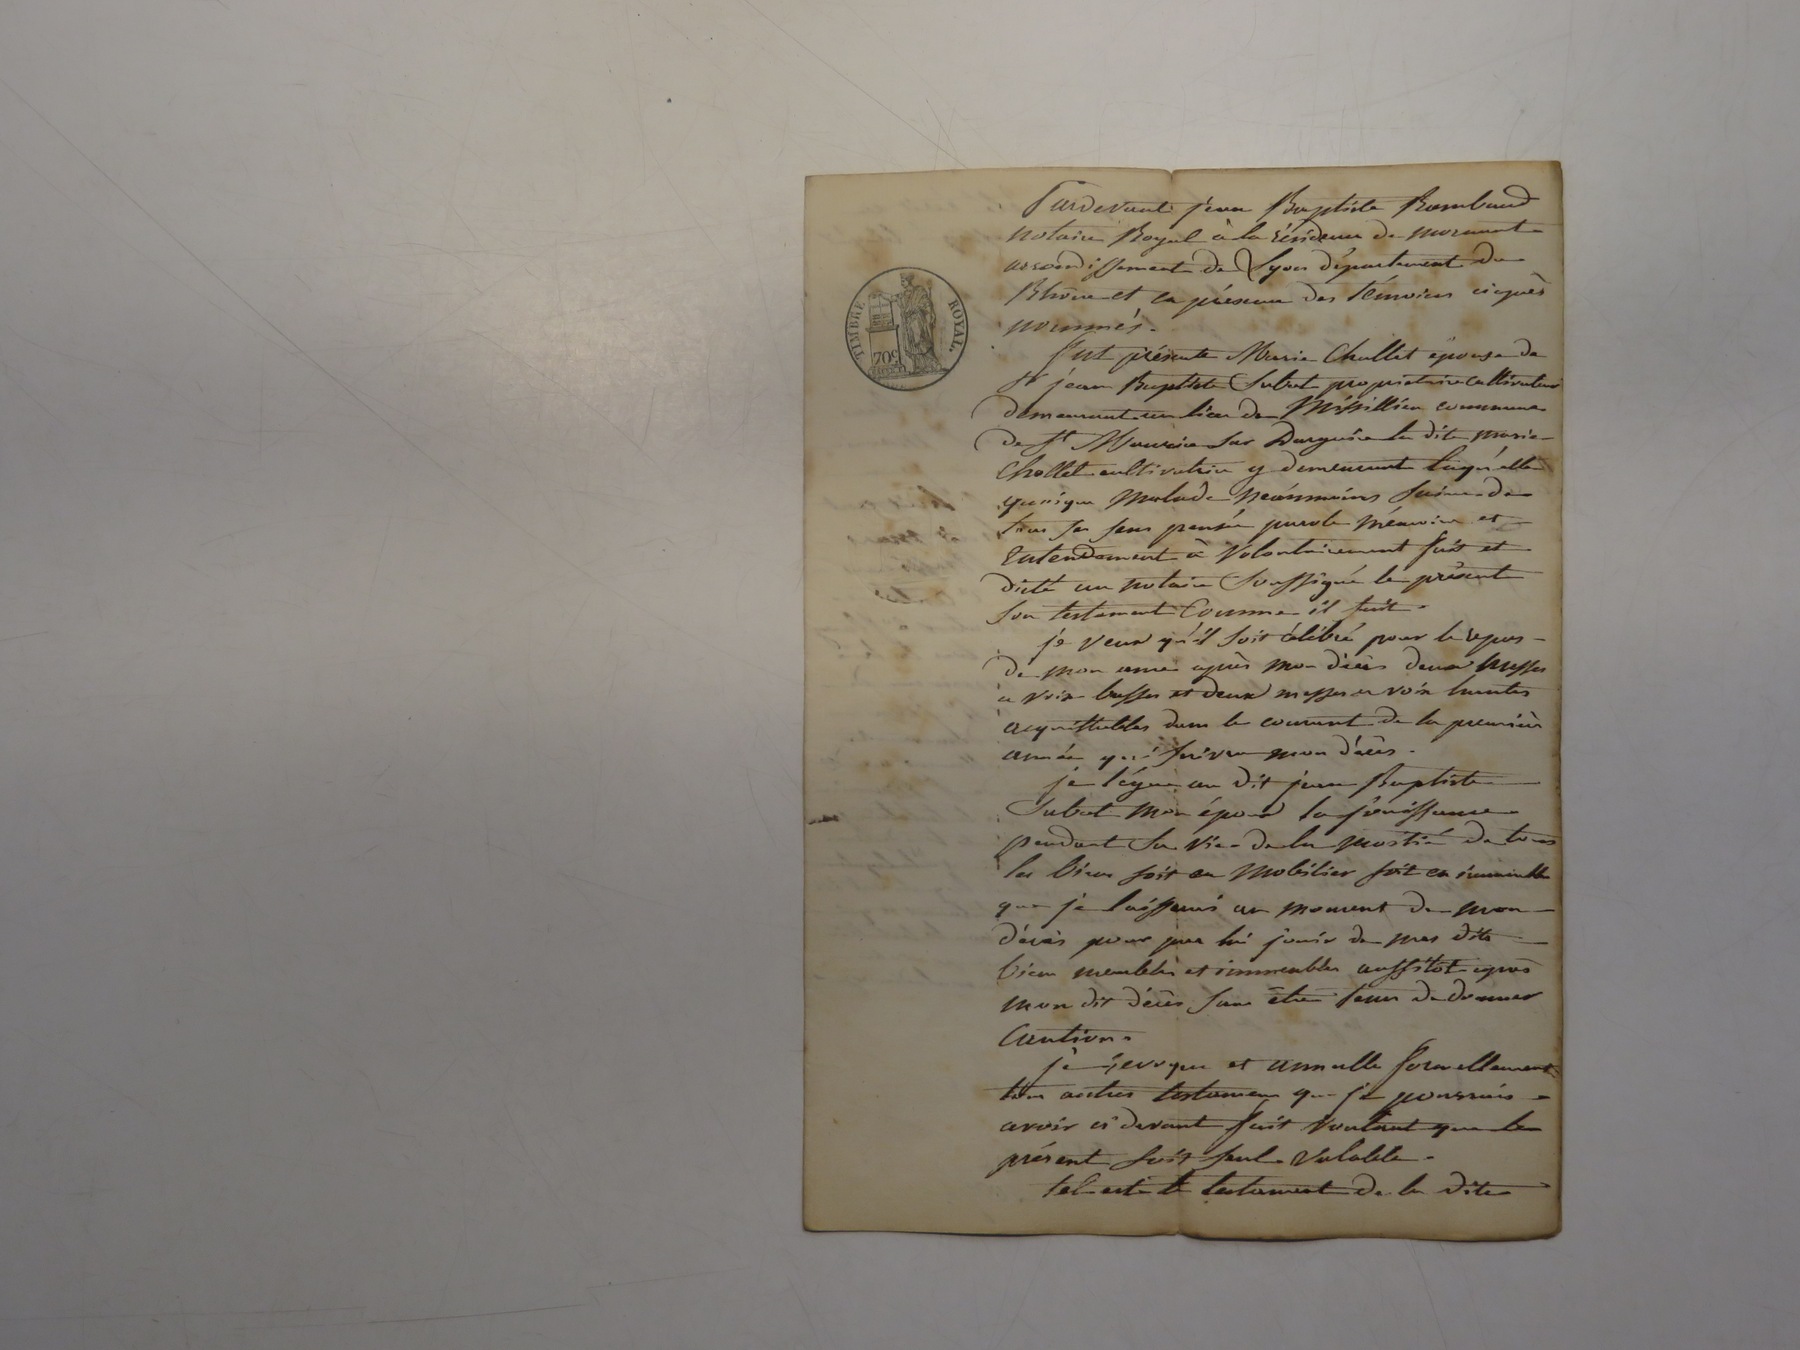 TIMBRE ROYAL
70c
Pardevant jean Baptiste Rambaud
notaire Royal à la résidence de mornant
arrondissement de Lyon département du
Rhône et en présence des témoins ciaprès
nommés.
fut présente Marie Chollet épouse de
St jean Baptiste Subat propriétaire cultivateur
demeurant au lieu de commune
de St Maurice Sur Dargoire la dite marie
Chollet cultivatrice y demeurant laquelle
quoique Malade néanmoins Saine de
tous ses sens pensée parole mémoire et
Entendement à Volontairement fait et
dicté au notaire Soussigné le présent
Son testament Comme il suit.
je veux qu'il soit célébré pour le repos
de mon ame après mon décès deux Messes
a voix basses et deux messes a voix hautes
acquittables dans le courant de la première
année qui Suivra mon décès.
je lègue au dit jean Baptiste
Subat Mon époux la jouissance
pendant Sa Vie de la moitié de tous
les biens soit en Mobilier soit en immeuble
que je laisserai au moment de mon
décès pour par lui jouir de mes dits
bien meubles et immeubles aussitôt après
mon dit décès sans être tenu de donner
Caution.
je révoque et annulle formellement
tous autres testamens que je pourrais
avoir ci devant fait Voulant que le
présent soit seul Valable.
tel est le testament de la dite